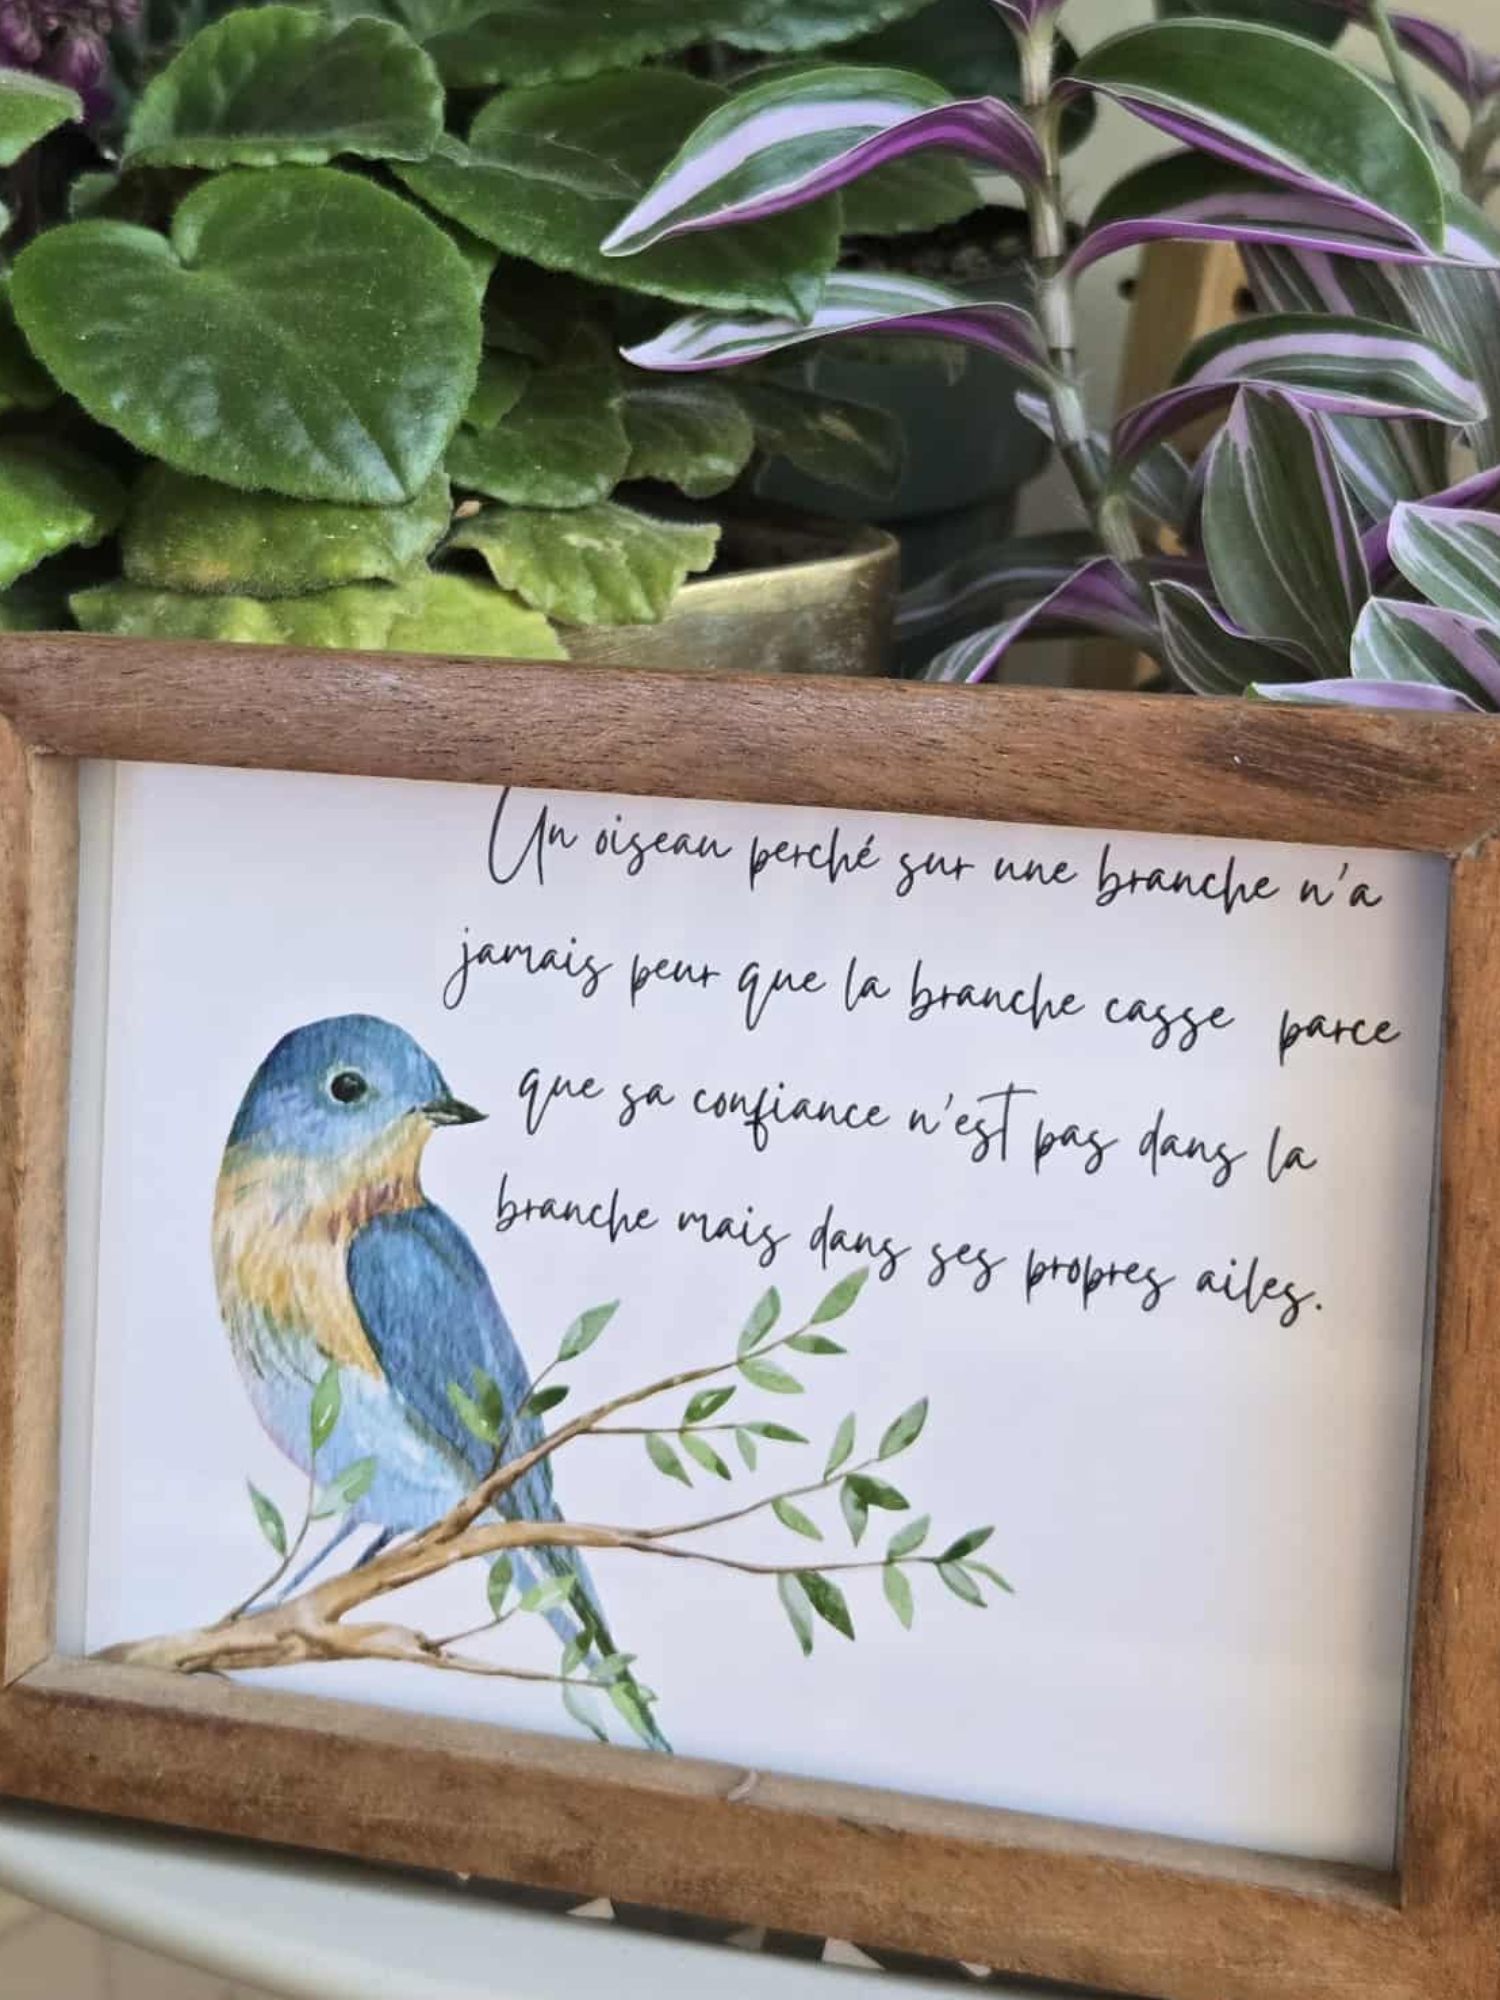 Un oiseau perché sur une branche n'a
jamais peur que la branche casse parce
que sa confiance n'est pas dans la
branche mais dans ses propres ailes.